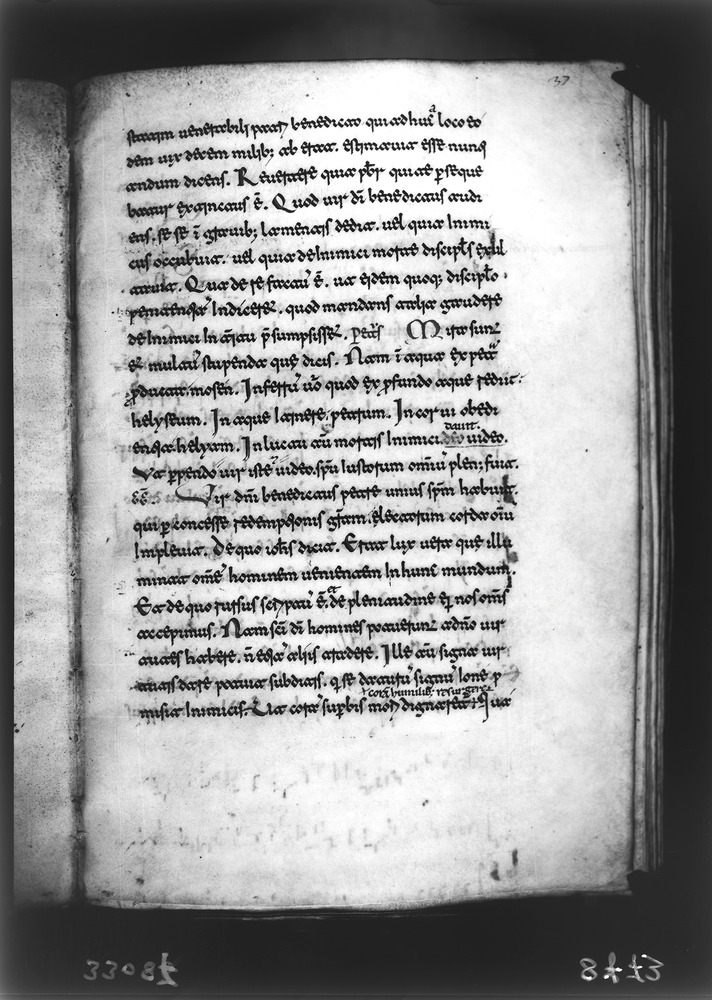 37
statim venerabili patri benedicto qui adhuc a loco eo
dem vix decem milib; ab erat. estimavit esse nunti
andum dicens. Revertere quia pbr qui te pseque
batur extinctus ē. Quod vir dī benedictus audi
ens. se se ī gravib; lamentis dedit. vel quia Inimi
cus occubuit. vel quia deInimici morte discipls exul
tavit. Qua de re factū ē. ut eidem quoq; disciplo
penitentiā Indiceret. quod mandans talia gaudere
deInimici Interitu psumpsisset. petrs Mira sunt
et multū stupenda que dicis. Nam ī aqua ex petra
pducta mosen. Inferru vō quod ex pfundo aque rediit.
helyseum. In aque Itinere petrum. In corvi obedi
entia helyam. Inluctu aū mortis Inimici david video.
Ut ppendo vir iste video spu Iustorum omniū plen; fuit.
Vir dni benedictus petre unius spm habuit.
qui p concesse redemptionis gram. electorum corda oīu
Implevit. De quo iohs dicit. Erat lux vera que illu
minat omē hominem venientem In hunc mundum.
Et de quo rursus scriptū ē. et de plenitudine ei nos oms
accepimus. Nam sci dī homines potuerunt adno vir
tutes habere. n etiā aliis tradere. Ille aū signa vir
tutis dare potuit subditis. q se daturū signū Ione p
+ cora humilib; resurgere
misit Inimicis. Ut cora supbis mori dignaretur + Qua
33087
8773